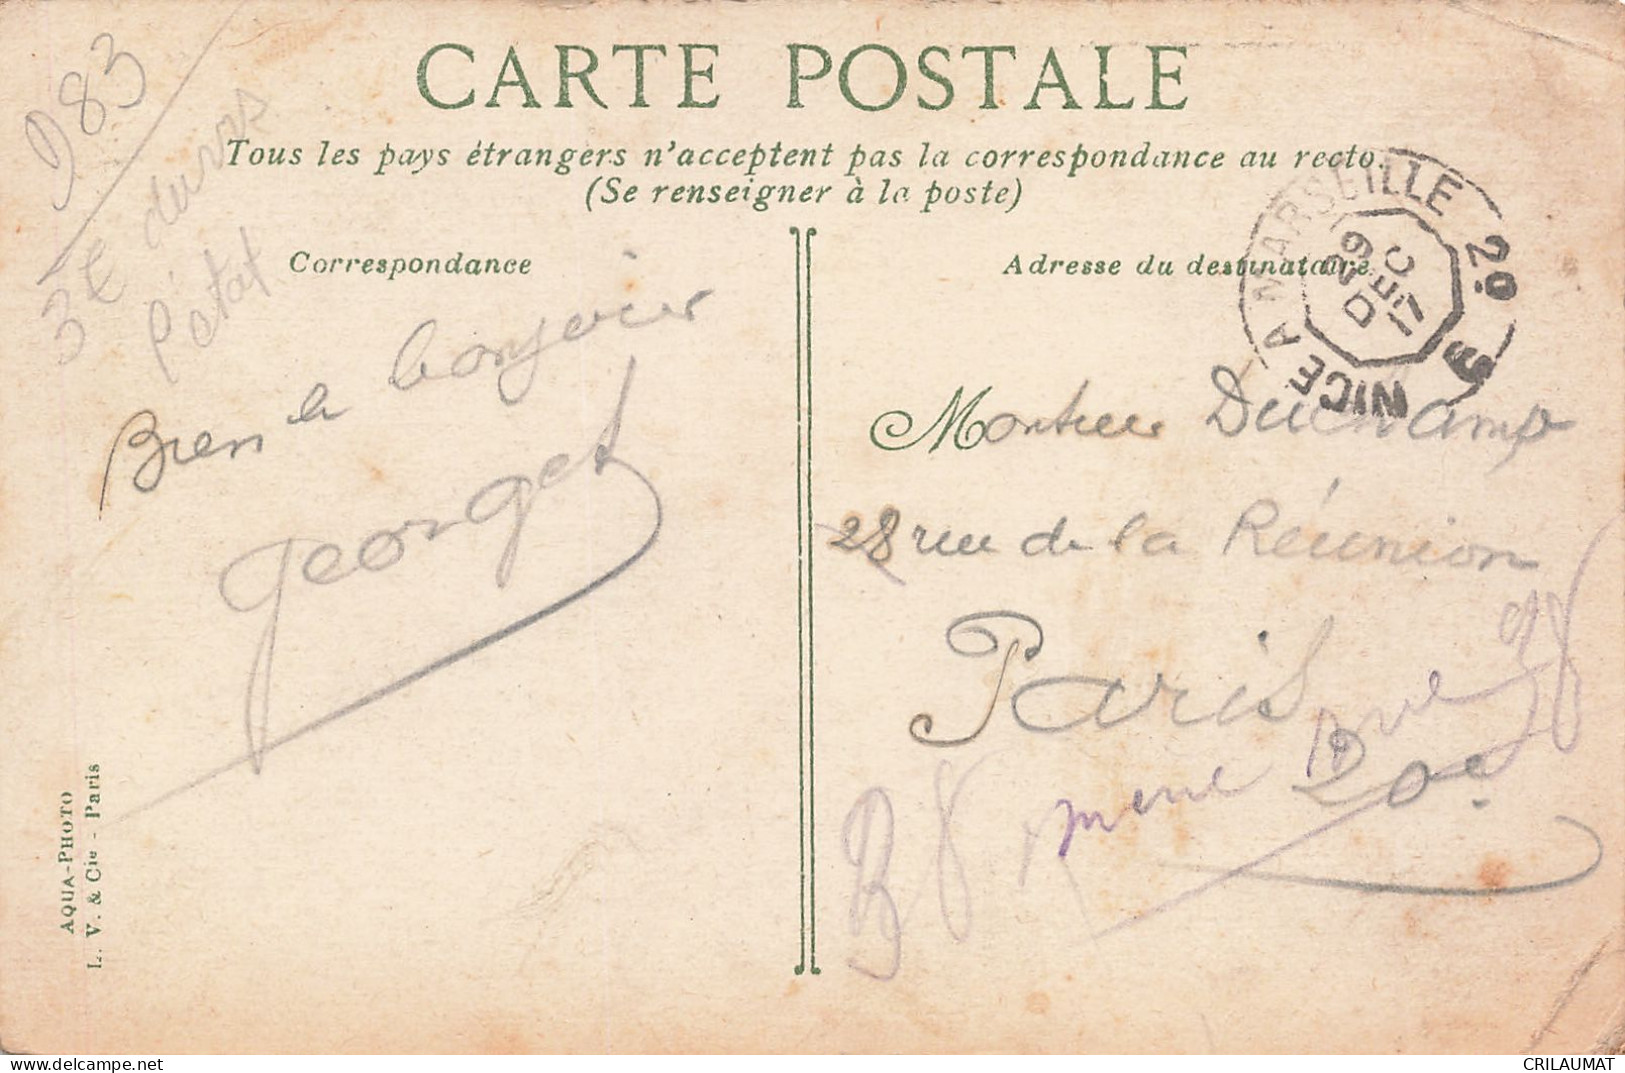 CARTE POSTALE
Tous les pays étrangers n'acceptent pas la correspondance au recto.
(Se renseigner à la poste)
983
3€ divers
l'état
Correspondance
Bien le bonjour
Georget
AQUA-PHOTO
L. V. & Cie - Paris
Adresse du destinataire
NICE A MARSEILLE 2º
29
DEC
17
Monsieur Duchamp
28 rue de la Réunion
Paris
20e
98
même rue
CRILAUMAT